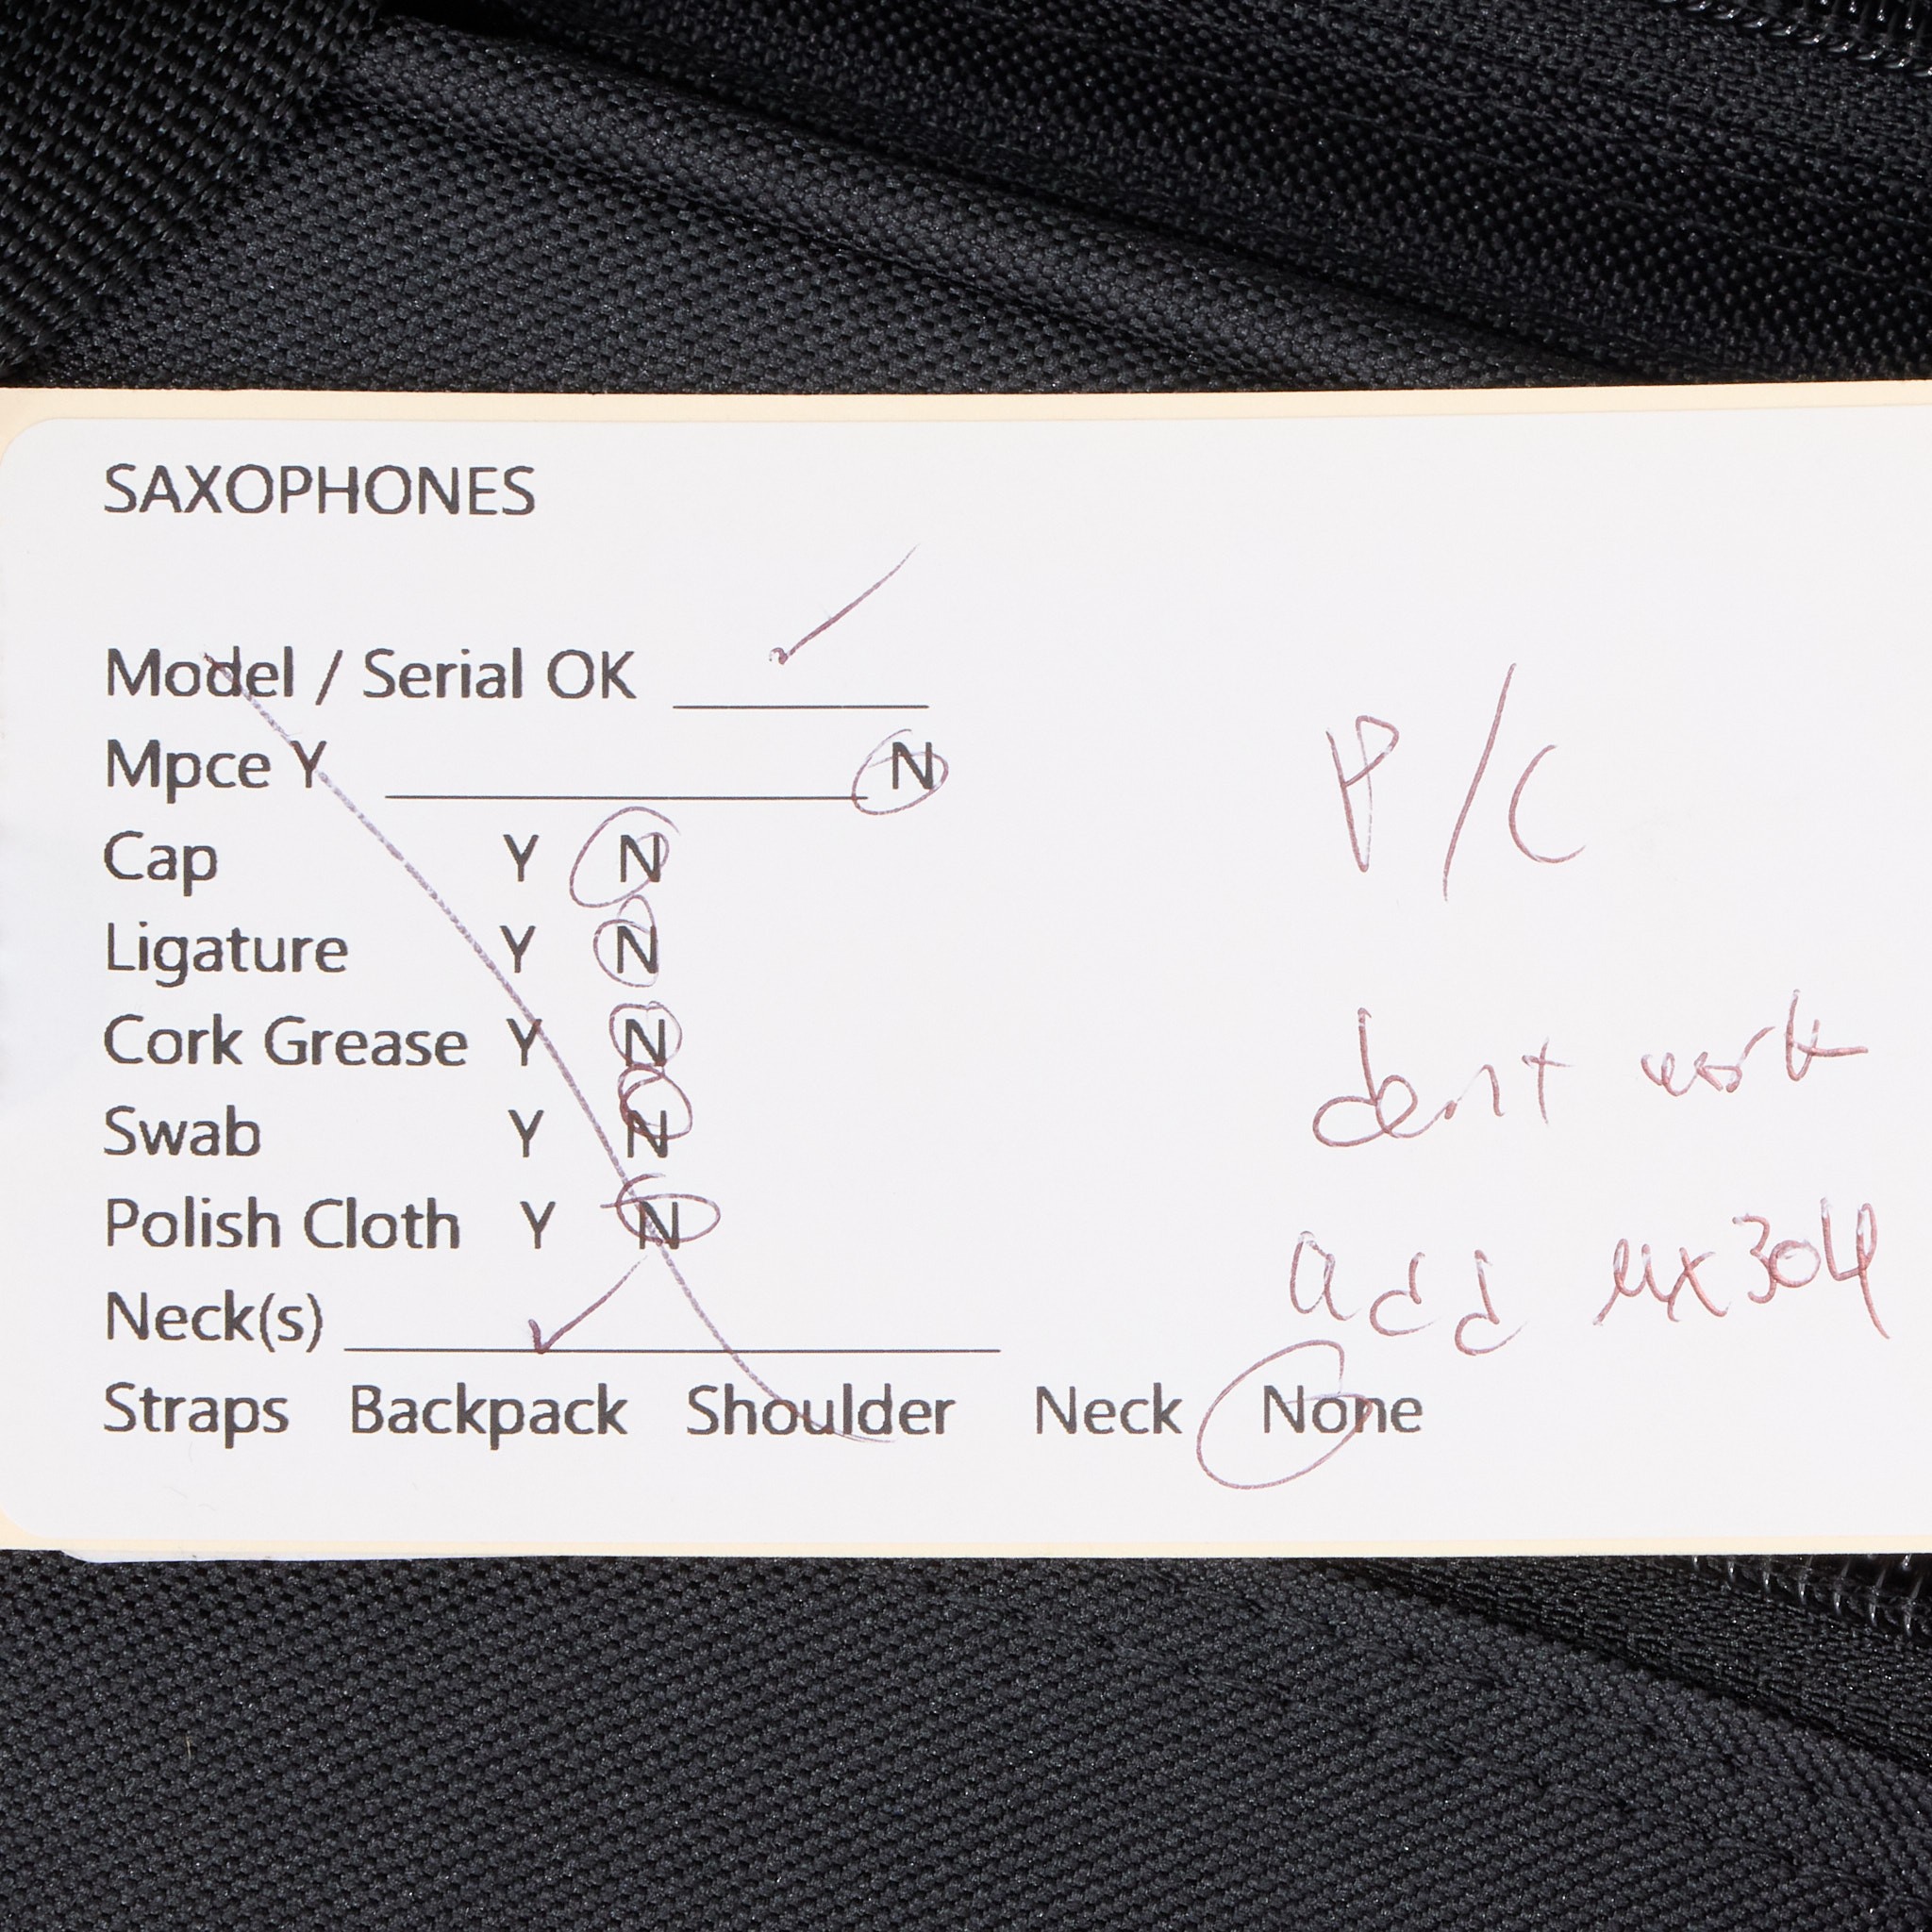 SAXOPHONES
Model / Serial OK ✓
Mpce Y N
Cap Y N
Ligature Y N
Cork Grease Y N
Swab Y N
Polish Cloth Y N
Neck(s) ✓
Straps Backpack Shoulder Neck None
P/C
dent work
add